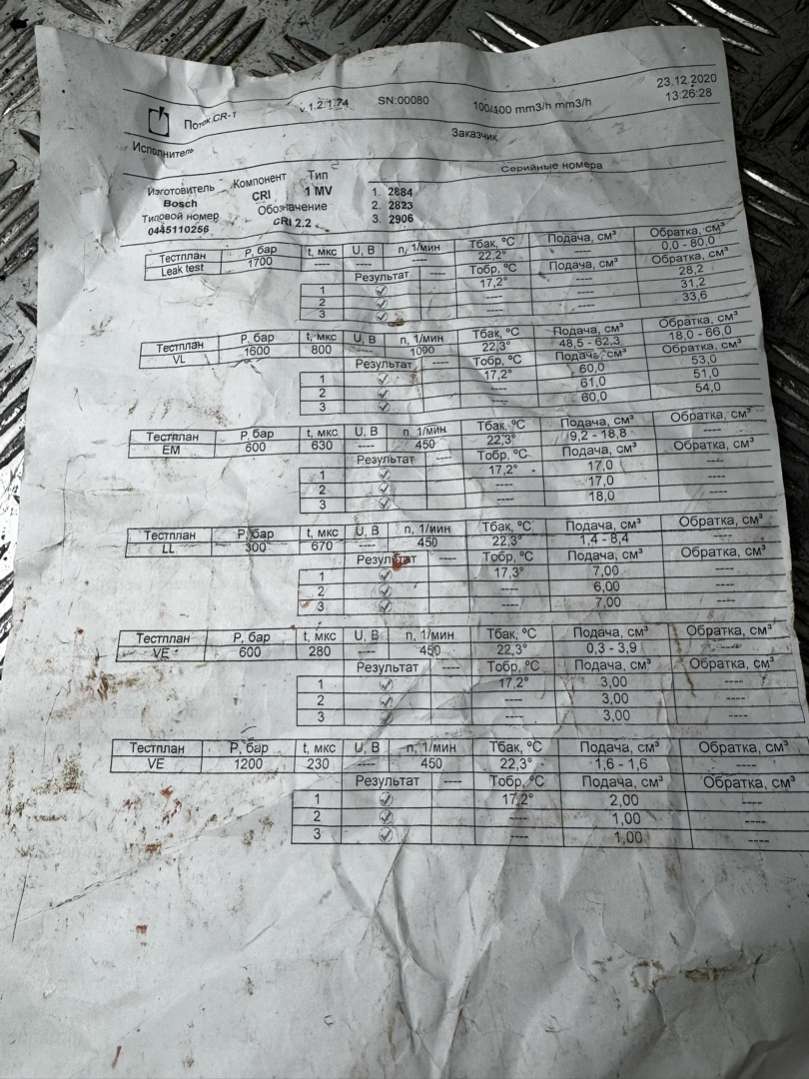 Поток CR-1 v.1.2.1.74 SN:00080 100/400 mm3/h mm3/h 23.12.2020
13:26:28
Исполнитель Заказчик
Серийные номера
Изготовитель Компонент Тип
Bosch CRI 1 MV 1. 2884
Типовой номер Обозначение 2. 2823
0445110256 CRI 2.2 3. 2906
Тестплан P, бар t, мкс U, В n, 1/мин Тбак, °C Подача, см³ Обратка, см³
Leak test 1700 ---- ---- ---- 22,2° ---- 0,0 - 80,0
Результат ---- Тобр, °C Подача, см³ Обратка, см³
1 17,2° ---- 28,2
2 ---- ---- 31,2
3 ---- ---- 33,6
Тестплан P, бар t, мкс U, В n, 1/мин Тбак, °C Подача, см³ Обратка, см³
VL 1600 800 ---- 1000 22,3° 48,5 - 62,3 18,0 - 66,0
Результат ---- Тобр, °C Подача, см³ Обратка, см³
1 17,2° 60,0 53,0
2 ---- 61,0 51,0
3 ---- 60,0 54,0
Тестплан P, бар t, мкс U, В n, 1/мин Тбак, °C Подача, см³ Обратка, см³
EM 600 630 ---- 450 22,3° 9,2 - 18,8 ----
Результат ---- Тобр, °C Подача, см³ Обратка, см³
1 17,2° 17,0 ----
2 ---- 17,0 ----
3 ---- 18,0 ----
Тестплан P, бар t, мкс U, В n, 1/мин Тбак, °C Подача, см³ Обратка, см³
LL 300 670 ---- 450 22,3° 1,4 - 8,4 ----
Результат ---- Тобр, °C Подача, см³ Обратка, см³
1 17,3° 7,00 ----
2 ---- 6,00 ----
3 ---- 7,00 ----
Тестплан P, бар t, мкс U, В n, 1/мин Тбак, °C Подача, см³ Обратка, см³
VE 600 280 ---- 450 22,3° 0,3 - 3,9 ----
Результат ---- Тобр, °C Подача, см³ Обратка, см³
1 17,2° 3,00 ----
2 ---- 3,00 ----
3 ---- 3,00 ----
Тестплан P, бар t, мкс U, В n, 1/мин Тбак, °C Подача, см³ Обратка, см³
VE 1200 230 ---- 450 22,3° 1,6 - 1,6 ----
Результат ---- Тобр, °C Подача, см³ Обратка, см³
1 17,2° 2,00 ----
2 ---- 1,00 ----
3 ---- 1,00 ----